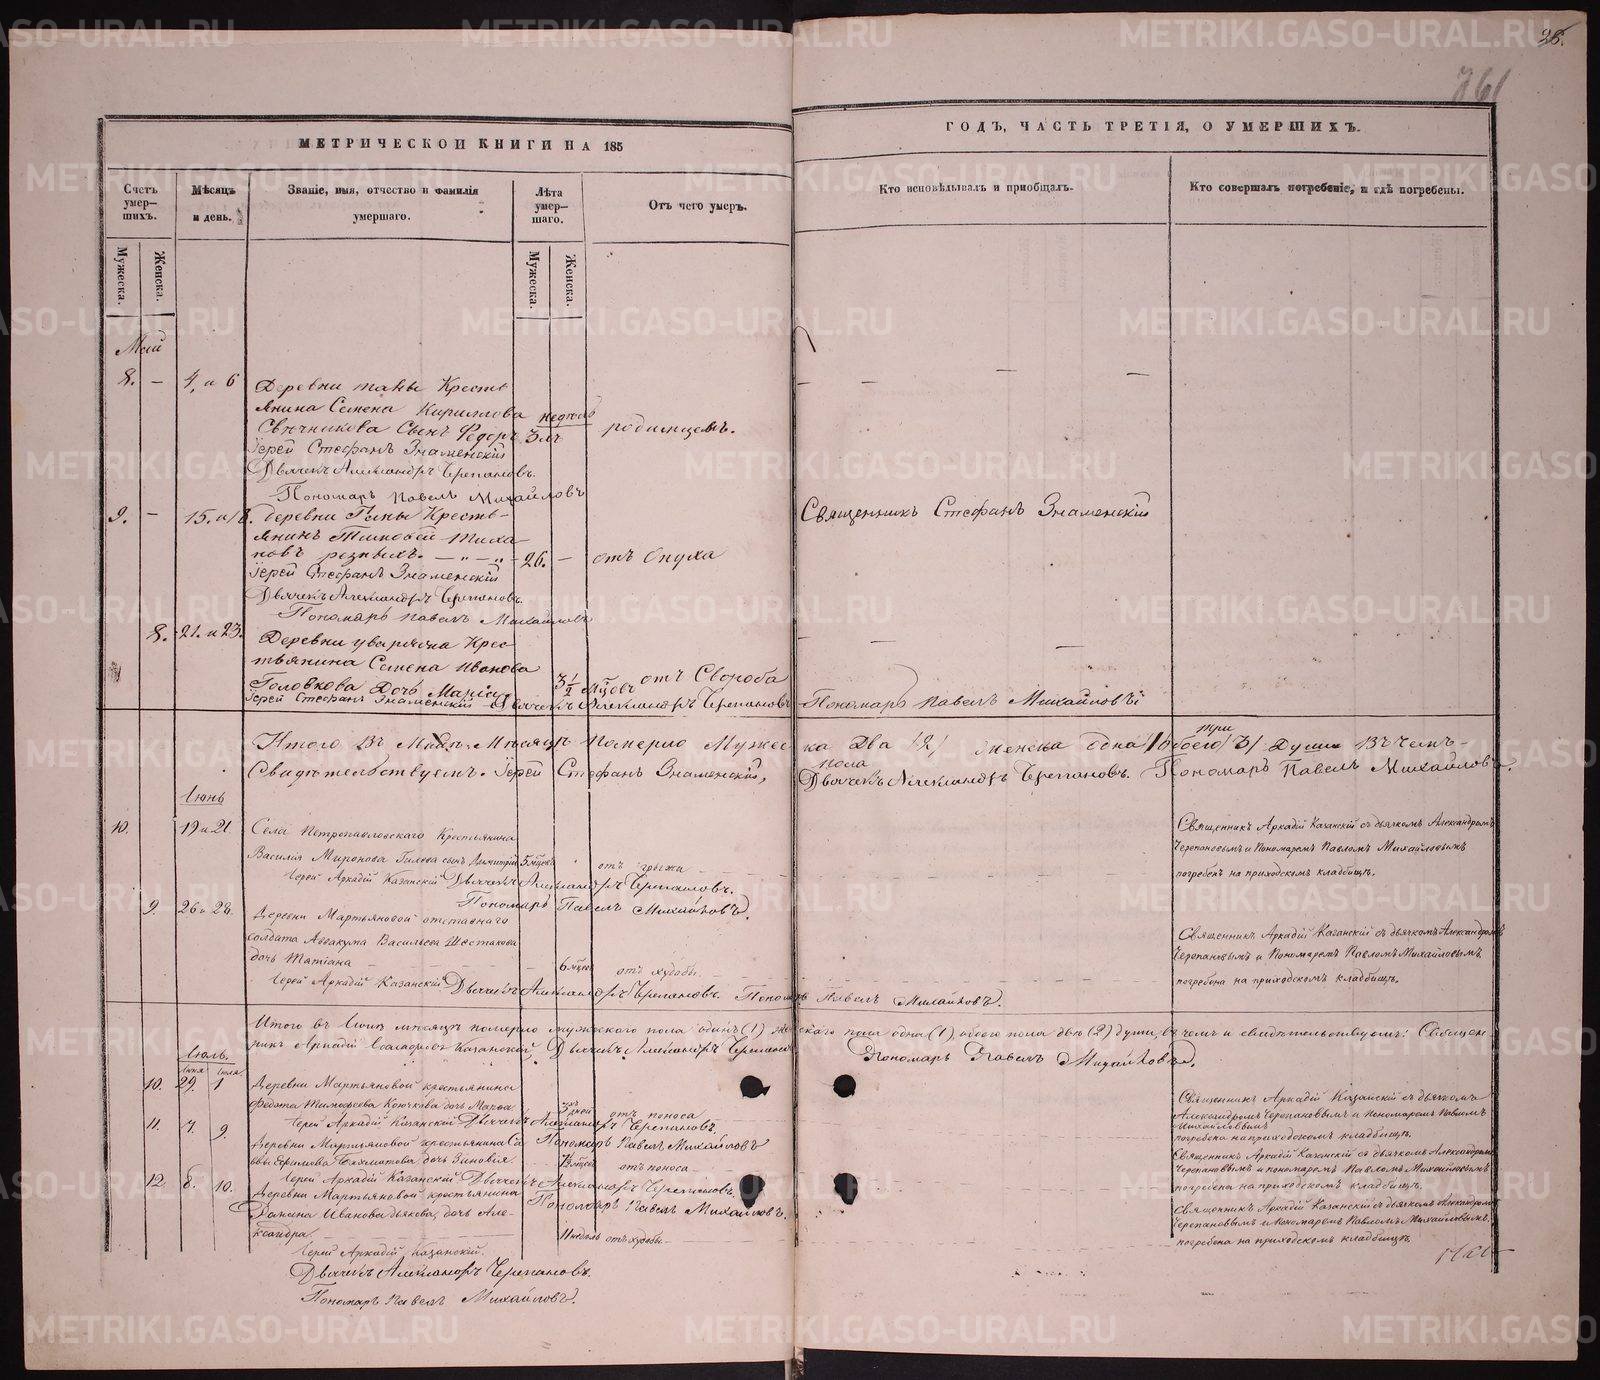 26.
761
МЕТРИЧЕСКОЙ КНИГИ НА 185
ГОДЪ, ЧАСТЬ ТРЕТІЯ, О УМЕРШИХЪ.
Счетъ умер-
шихъ.
Мужеска.
Женска.
Мѣсяцъ
и день.
Званіе, имя, отчество и фамилія
умершаго.
Лѣта
умер-
шаго.
Мужеска.
Женска.
Отъ чего умеръ.
Кто исповѣдывалъ и пріобщалъ.
Кто совершалъ погребеніе, и гдѣ погребены.
Май
8. — 4, и 6
Деревни Кресть
янина Семена Кириллова недѣль
Свѣчникова Сынъ Ѳедоръ 3
родимцемъ.
Іерей Стефанъ Знаменскій
Дьячекъ Александръ Черепановъ.
Пономарь Павелъ Михайловъ
9. — 15. и 18.
деревни Кресть-
янинъ Тимоѳей Тиха
новъ — 26. — отъ Опуха
Священникъ Стефанъ Знаменскій
Іерей Стефанъ Знаменскій
Дьячекъ Александръ Черепановъ.
Пономарь Павелъ Михайловъ
8. 21. и 23.
Деревни Крес-
тьянина Семена Иванова
Головкова Дочь Марія
3 1/2 мѣсцовъ отъ Свороба
Іерей Стефанъ Знаменскій Дьячекъ Александръ Черепановъ Пономарь Павелъ Михайловъ
Итого въ Маѣ Мѣсяцѣ померло Мужеска пола Два /2/ женска одна /1/ обоего /3/ три Души Въ чемъ-
Свидѣтельствуемъ. Іерей Стефанъ Знаменскій, Дьячекъ Александръ Черепановъ. Пономарь Павелъ Михайловъ.
Іюнь
10. 19 и 21
Села Петропавловскаго Крестьянина
Василія Миронова Гилева сынъ Димитрій 5 мѣсцовъ отъ грыжи
Іерей Аркадій Казанскій Дьячекъ Александръ Черепановъ.
Пономарь Павелъ Михайловъ.
Священникъ Аркадій Казанскій съ дьячкомъ Александромъ
Черепановымъ и Пономаремъ Павломъ Михайловымъ
погребенъ на приходскомъ кладбищѣ.
9. 26 и 28.
Деревни Мартьяновой отставнаго
солдата Аввакума Васильева Шестакова
дочь Татіана 6 мѣсцовъ отъ худобы
Іерей Аркадій Казанскій Дьячекъ Александръ Черепановъ. Пономарь Павелъ Михайловъ.
Священникъ Аркадій Казанскій съ дьячкомъ Александромъ
Черепановымъ и Пономаремъ Павломъ Михайловымъ,
погребена на приходскомъ кладбищѣ.
Итого въ Іюнѣ мѣсяцѣ померло мужескаго пола одинъ (1) женскаго пола одна (1), обоего пола двѣ (2) души, въ чемъ и свидѣтельствуемъ: Священ
никъ Аркадій Казанскій. Дьячекъ Александръ Черепановъ Пономарь Павелъ Михайловъ.
Іюль.
Іюня Іюля
10. 29. 1
Деревни Мартьяновой крестьянина
Ѳедота Тимоѳеева Крючкова дочь Марѳа дней отъ поноса
Іерей Аркадій Казанскій Дьячекъ Александръ Черепановъ.
Пономарь Павелъ Михайловъ
Священникъ Аркадій Казанскій съ дьячкомъ
Александромъ Черепановымъ и пономаремъ Павломъ
Михайловымъ
погребена на приходскомъ кладбищѣ.
11. 7. 9.
Деревни Мартьяновой крестьянина Са
ввы Бахматова дочь Зиновія мѣсцовъ отъ поноса
Іерей Аркадій Казанскій Дьячекъ Александръ Черепановъ,
Пономарь Павелъ Михайловъ.
Священникъ Аркадій Казанскій съ дьячкомъ Александромъ
Черепановымъ и пономаремъ Павломъ Михайловымъ
погребена на приходскомъ кладбищѣ.
12. 8. 10.
Деревни Мартьяновой крестьянина
Иванова Дьякова, дочь Але-
ксандра 11 недѣль отъ худобы
Іерей Аркадій Казанскій.
Дьячекъ Александръ Черепановъ.
Пономарь Павелъ Михайловъ.
Священникъ Аркадій Казанскій съ дьячкомъ Александромъ
Черепановымъ и Пономаремъ Павломъ Михайловымъ,
погребена на приходскомъ кладбищѣ.
METRIKI.GASO-URAL.RU